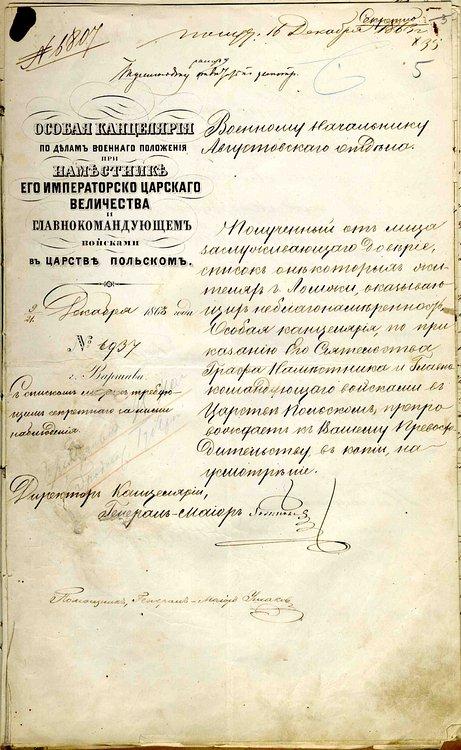 Секретно
№ 6807
получ. 16 Декабря 1863 г.
5
ОСОБАЯ КАНЦЕЛЯРІЯ
ПО ДѢЛАМЪ ВОЕННАГО ПОЛОЖЕНІЯ
ПРИ
НАМѢСТНИКѢ
ЕГО ИМПЕРАТОРСКО ЦАРСКАГО
ВЕЛИЧЕСТВА
И
ГЛАВНОКОМАНДУЮЩЕМЪ
ВОЙСКАМИ
ВЪ ЦАРСТВѢ ПОЛЬСКОМЪ.
Декабря 1863 года
№ 6937
г. Варшава
Съ спискомъ лицъ требую-
щимъ секретнаго за ними
наблюденія
Военному Начальнику
Августовскаго отдѣла.
Полученный отъ лица
заслуживающаго довѣріе,
списокъ о нѣкоторыхъ жи-
теляхъ г. Ломжи, оказываю-
щихъ неблагонамѣренность
Особая канцелярія, по при-
казанію Его Сіятельства
Графа Намѣстника и Главно-
командующаго войсками въ
Царствѣ Польскомъ, препро-
вождаетъ къ Вашему Превосхо-
дительству, въ копіи, на
усмотрѣніе.
Директоръ Канцеляріи,
Генералъ-Маіоръ
Помощникъ, Генералъ-Маіоръ Ушаковъ